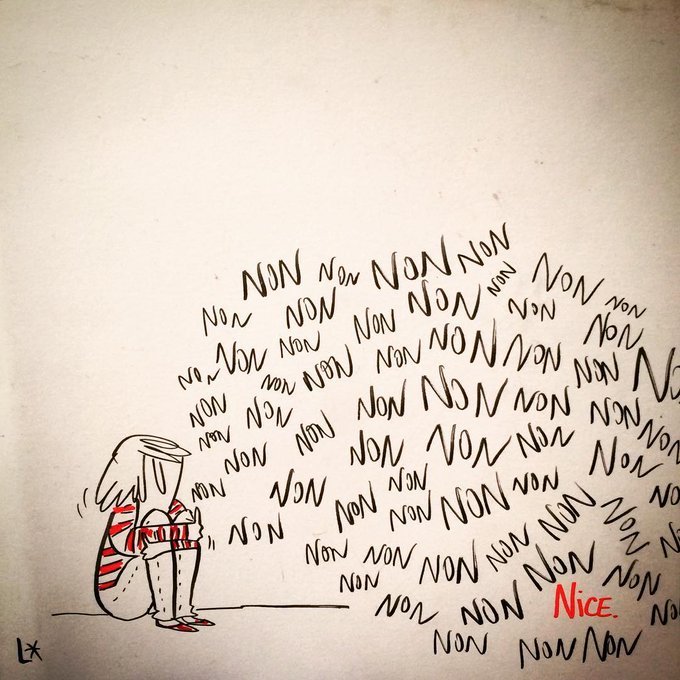 NON NON NON NON NON NON NON
NON NON NON NON NON NON
NON NON NON NON NON NON NON NO
NON NON
NON NON NON NON NON NON
NON NON NON NON NON NON
NON NON NON NON
NON NON NON NON NON NON NO
NON NON NON N
NON NON NON NON NON
NON NON NON NiCE. NO
NON NON NON
L*